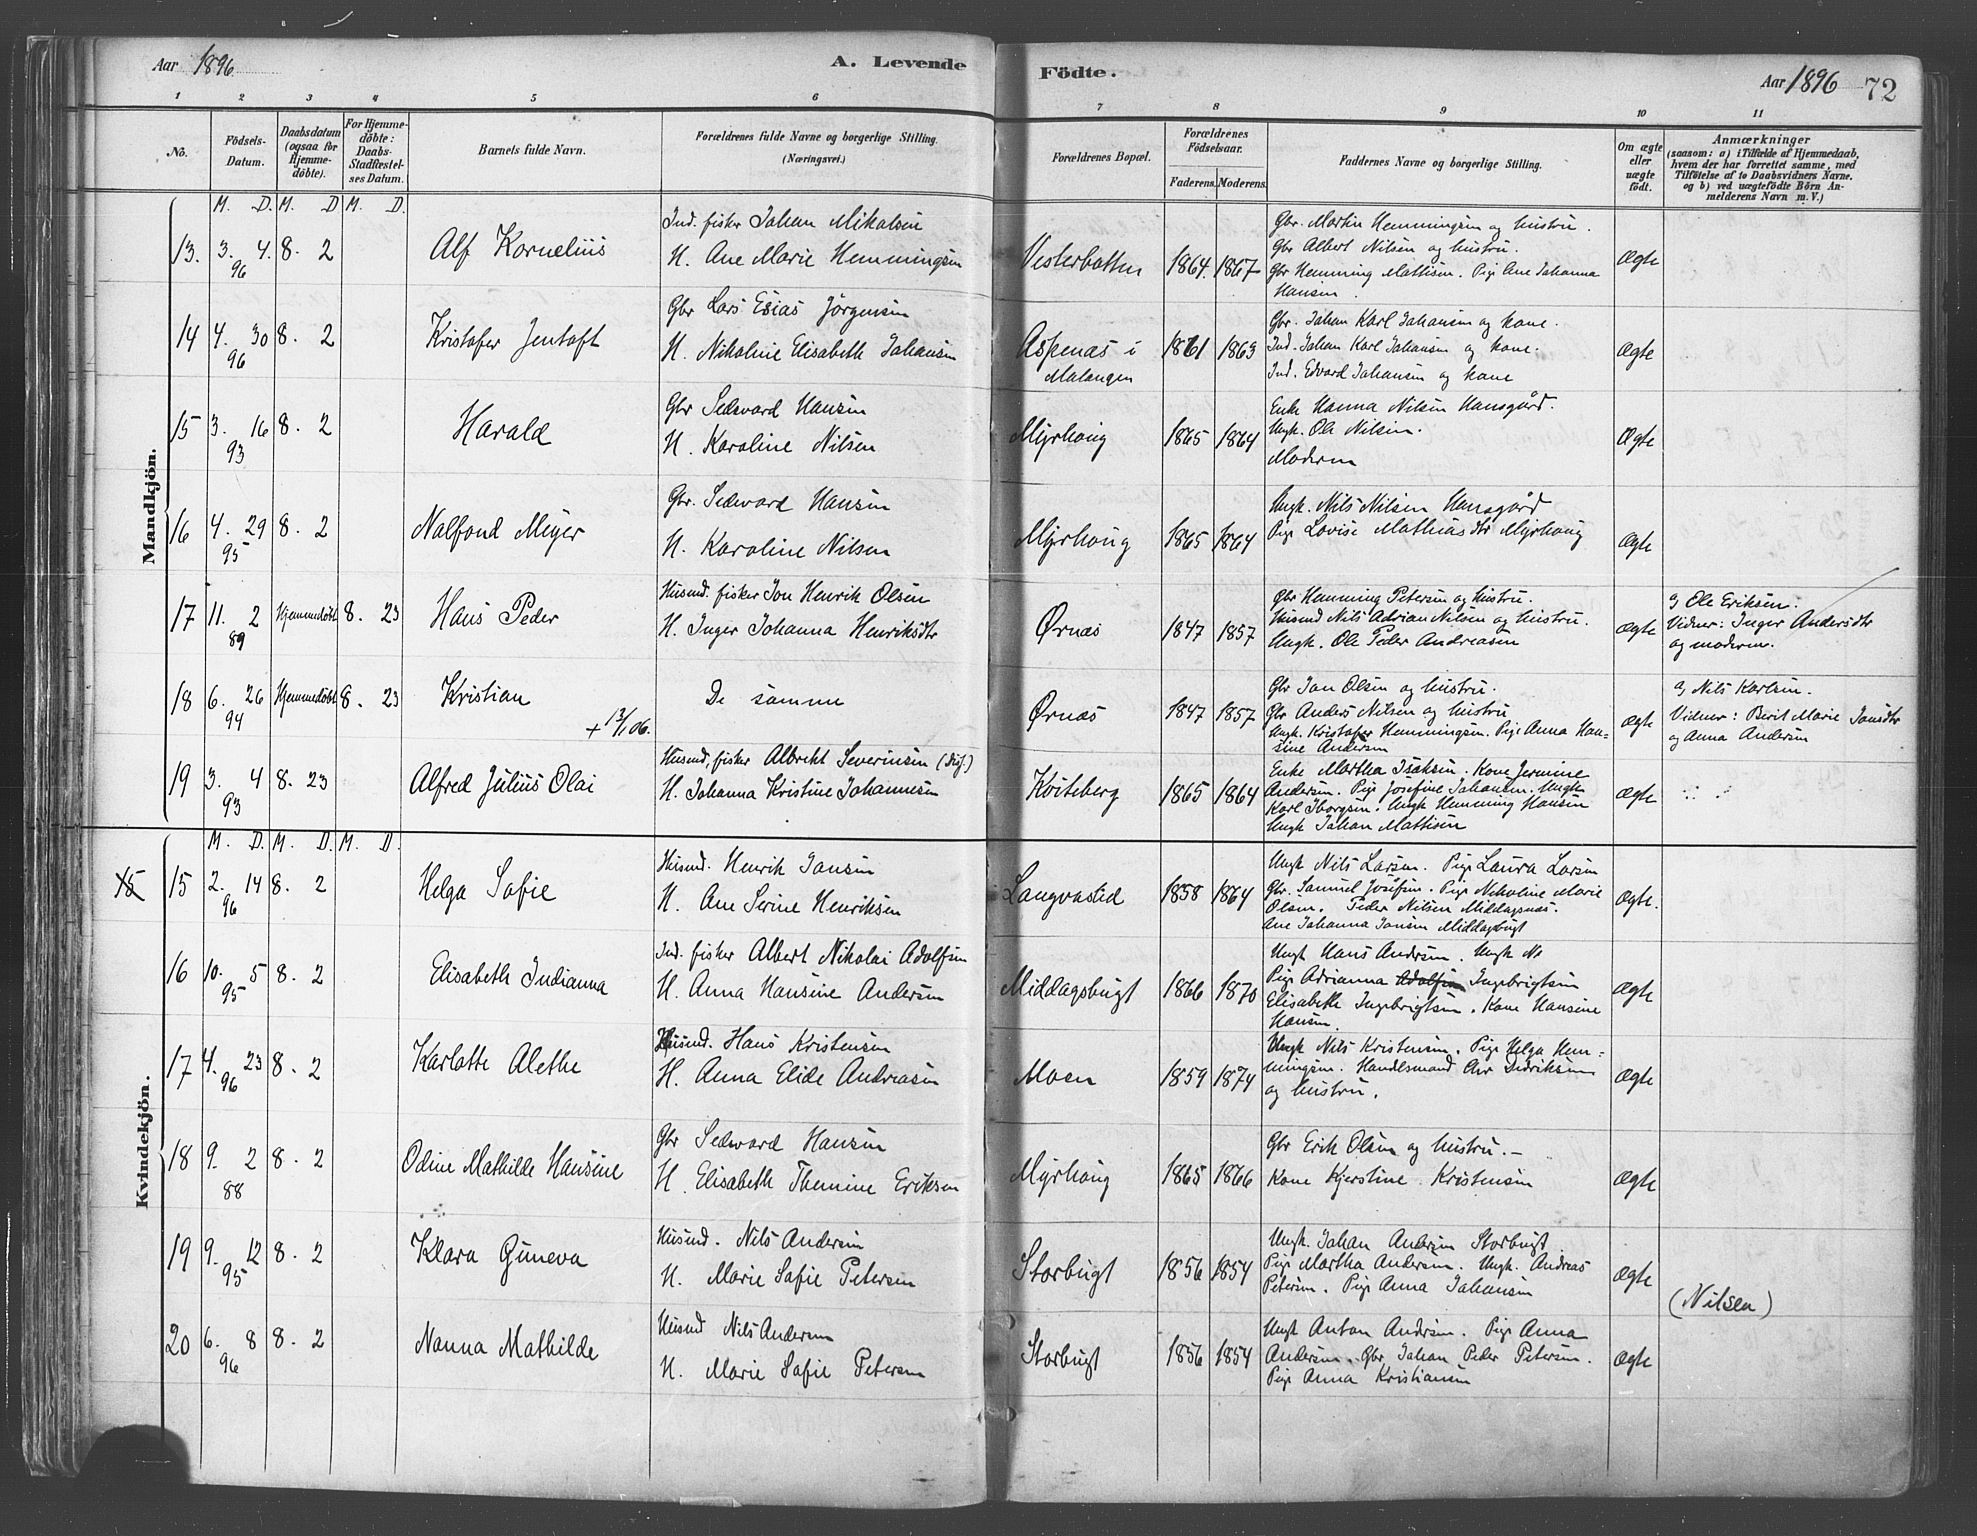 Aar 1896
A. Levende Födte.
Aar 1896 72
1 2 3 4 5 6 7 8 9 10 11
No.
Födsels-Datum.
Daabsdatum (ogsaa for Hjemme-döbte).
For Hjemme-döbte: Daabs-Stadfæstel-ses Datum.
Barnets fulde Navn.
Forældrenes fulde Navne og borgerlige Stilling. (Næringsvei.)
Forældrenes Bopæl.
Forældrenes Födselsaar.
Faderens. Moderens.
Faddernes Navne og borgerlige Stilling.
Om ægte eller uægte födt.
Anmærkninger
(saasom: a) i Tilfælde af Hjemmedaab,
hvem der har forrettet samme, med
Tilföielse af to Daabsvidners Navne.
og b) ved uægtefödte Börn An-
melderens Navn m. V.)
Mandkjön.
M. D. M. D M. D.
13. 3. 4. 96 8. 2
Alf Kornelius
Ind. fisker Johan Mikalsen
H. Ane Marie Hemmingsen
Vesterbotten 1864. 1867
Gbr. Martin Hemmingsen og hustru.
Gbr Albert Nilsen og hustru.
Gbr Hemming Mattisen. Pige Ane Johanna
Hansen.
Ægte
14 4. 30 96 8. 2
Kristofer Jentoft
Gbr Lars Esias Jörgensen
H. Nikoline Elisabeth Johansen
Aspenæs i
Malangen
1861 1863
Gbr. Johan Karl Johansen og kone.
Ind. Johan Karl Johansen og kone.
Ind. Edvard Johansen og kone
Ægte
15 3. 16 93 8. 2
Harald
Gbr Sedvard Hansen
H. Karoline Nilsen
Myrhoug 1865 1864
Enke Hanna Nilsen Hansgård.
Ungk. Ole Nilsen.
Moderen
Ægte
16 4. 29 95 8. 2
Nalfond Meyer
Gbr. Sedvard Hansen
H. Karoline Nilsen
Myrhoug 1865 1864
Ungk. Nils Nilsen Hansgård
Pige Lovise Mathiasdtr Myrhoug
Ægte
17 11. 2 89 Hjemmedöbt 8. 23
Hans Peder
Husmd. fisker Jon Henrik Olsen
H. Inger Johanna Henriksdtr
Ørnæs 1847 1857
Gbr Hemming Petersen og hustru.
Husmd Nils Adrian Nilsen og hustru.
Ungk. Ole Peder Andreasen
Ægte
a) Ole Eriksen.
Vidner: Inger Andersdtr
og moderen.
18 6. 26 94 Hjemmedöbt 8. 23
Kristian
+ 13/1 06.
De samme
Ørnæs 1847 1857
Gbr Jon Olsen og hustru.
Gbr Anders Nilsen og hustru
Ungk. Kristofer Hemmingsen. Pige Anna Han-
sine Andersen
Ægte
a) Nils Karlsen.
Vidner: Berit Marie Jonsdtr
og Anna Andersen
19 3. 4 93 8. 23
Alfred Julius Olai
Husmd, fisker Albrekt Severinsen
H. Johanna Kristine Johannesen
Koiteberg 1865 1864
Enke Martha Isaksen. Kone Jermine
Andersen. Pige Josefine Johansen. Ungk
Karl Iborgsen. Ungk Hemming Hansen
Ungk Johan Mattisen
Ægte
Kvindekjön.
M. D. M. D. M. D.
15 15 2. 14 96 8. 2
Helga Sofie
Husmd. Henrik Jonsen
H. Ane Serine Henriksen
Langvaseid 1858 1864
Ungk Nils Larsen. Pige Laura Larsen
Gbr. Samuel Josefsen. Pige Nikoline Marie
Olsen. Peder Nilsen Middagsnæs.
Ane Johanna Jonsen Middagsbugt
Ægte.
16 10. 5 95 8. 2
Elisabeth Indianna
Ind. fisker Albert Nikolai Adolfsen
H. Anna Hansine Andersen
Middagsbugt 1866 1870
Ungk Hans Andersen. Ungk
Pige Adrianna Adolfsen Ingebrigtsen
Elisabeth Ingebrigtsen. Kone Hansine
Hansen.
Ægte
17 4. 23 96 8. 2
Karlotte Alethe
Husmd. Hans Kristensen
H. Anna Elide Andreasen
Moen 1859 1874
Ungk Nils Kristensen. Pige Helga Hem-
mingsen. Handelsmand Didriksen
og hustru.
Ægte
18 9. 2 88 8. 2
Odine Mathilde Hansine
Gbr Sedward Hansen
H. Elisabeth Themine Eriksen
Myrhoug 1865 1866
Gbr Erik Olsen og hustru.-
Kone Kjerstine Kristensen
Ægte
19 9. 12 95 8. 2
Klara Guneva
Husmd. Nils Andersen
H. Marie Sofie Petersen
Storbugt 1856 1854
Ungk. Johan Andersen Storbugt
Pige Martha Andersen. Ungk. Andreas
Petersen. Pige Anna Johansen
Ægte
(Nilsen)
20 6. 8 96 8. 2
Nanna Mathilde
Husmd Nils Andersen
H. Marie Sofie Petersen
Storbugt 1856 1854
Ungk Anton Andersen. Pige Anna
Andersen. Gbr Johan Peder Petersen.
Pige Anna Kristiansen
Ægte